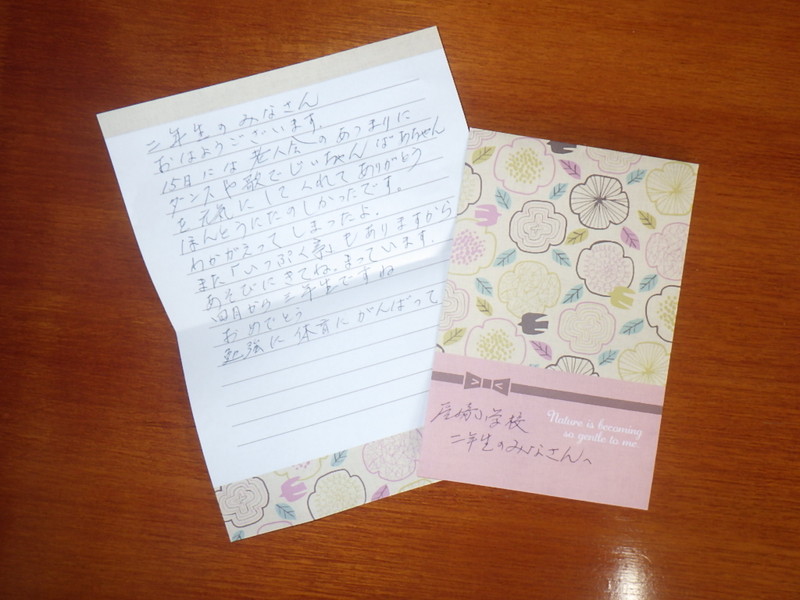 二年生のみなさん
おはようございます。
15日には老人会のあつまりに
ダンスや歌でじいちゃんばあちゃん
を元気にしてくれてありがとう
ほんとうにたのしかったです。
わかがえってしまったよ。
また「いっぷく亭」もありますから
あそびにきてね。まっています。
四月から三年生ですね
おめでとう
勉強に体育にがんばって
小学校
二年生のみなさんへ
Nature is becoming
so gentle to me.